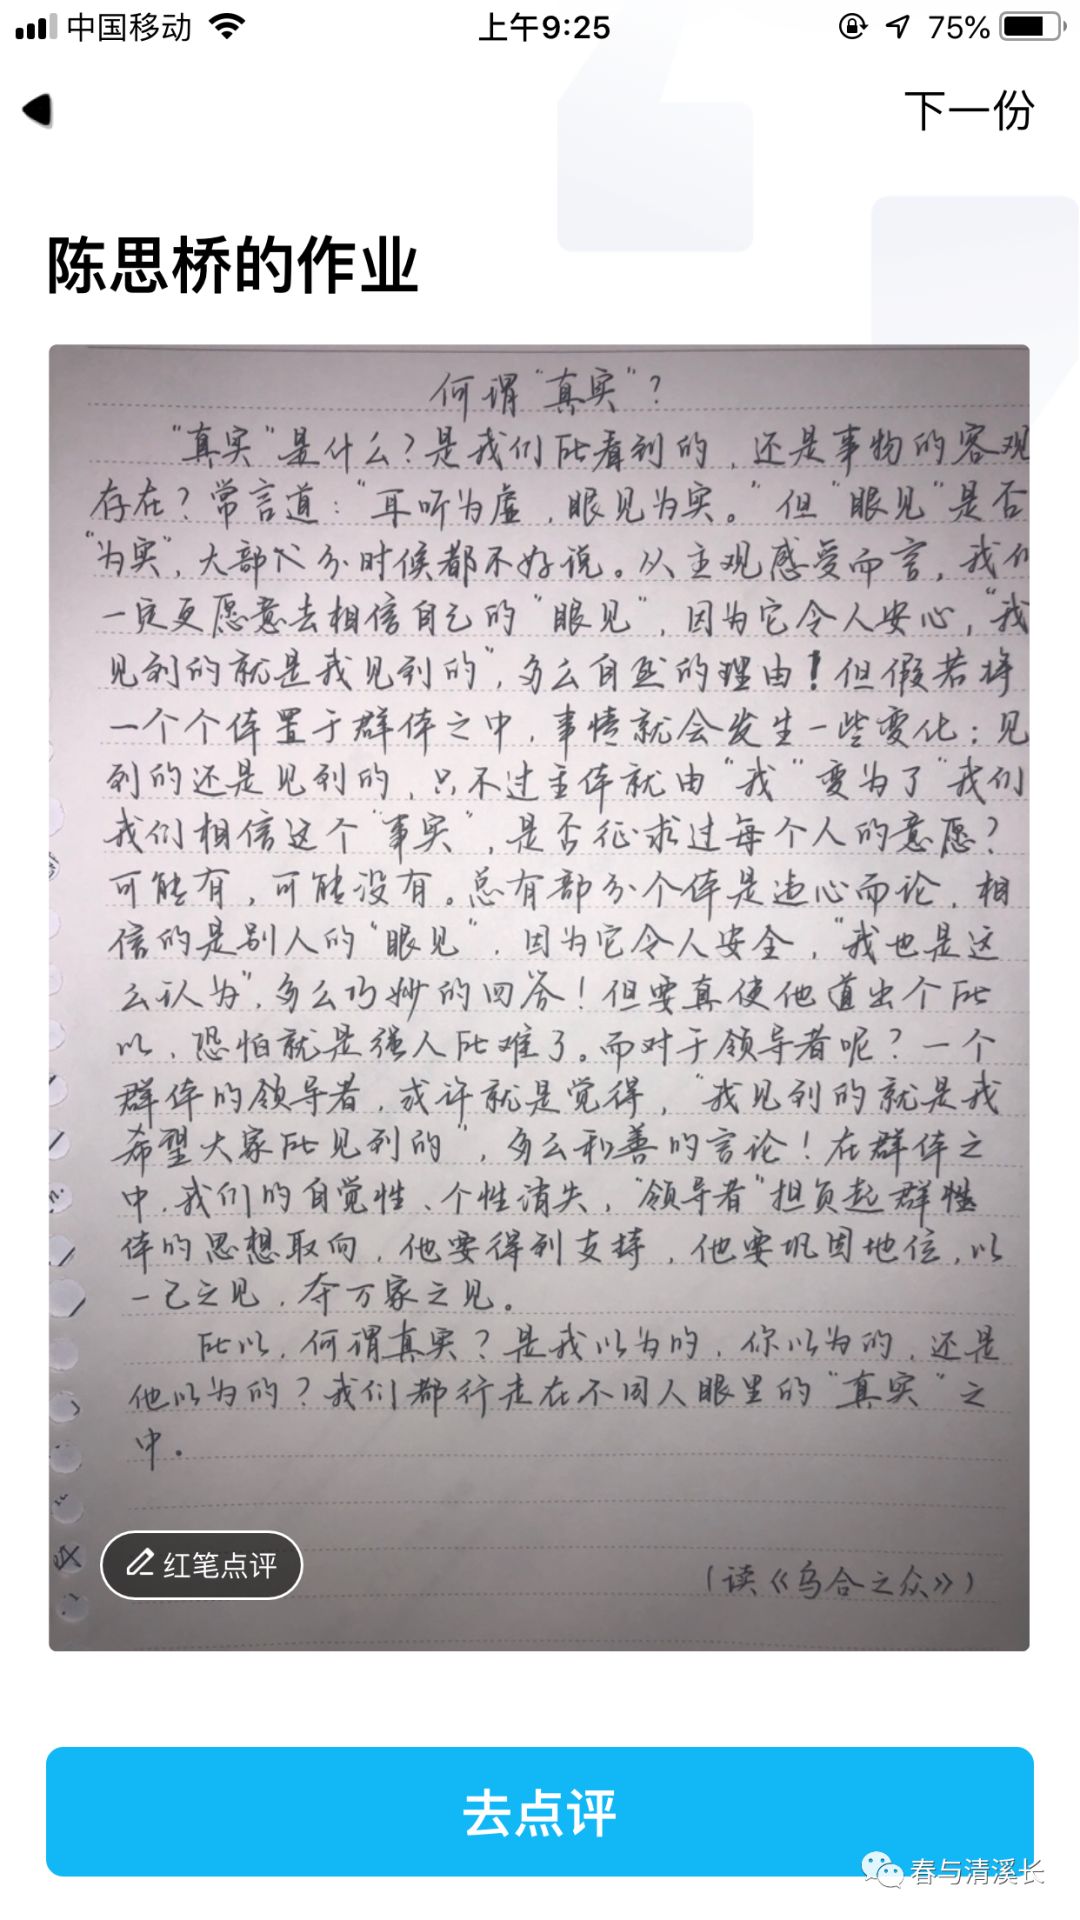 中国移动 上午9:25 75%
下一份
陈思桥的作业
何谓“真实”?
“真实”是什么?是我们所看到的,还是事物的客观
存在?常言道:“耳听为虚,眼见为实。”但“眼见”是否
“为实”,大部分时候都不好说。从主观感受而言,我们
一定更愿意去相信自己的“眼见”,因为它令人安心,“我
见到的就是我见到的”,多么自然的理由!但假若将
一个个体置于群体之中,事情就会发生一些变化:见
到的还是见到的,只不过主体就由“我”变为了“我们
我们相信这个“事实”,是否征求过每个人的意愿?
可能有,可能没有。总有部分个体是违心而论,相
信的是别人的“眼见”,因为它令人安全,“我也是这
么认为”,多么巧妙的回答!但要真使他道出个所
以,恐怕就是强人所难了。而对于领导者呢?一个
群体的领导者,或许就是觉得,“我见到的就是我
希望大家所见到的”,多么和善的言论!在群体之
中,我们的自觉性、个性消失,“领导者”担负起群
体的思想取向,他要得到支持,他要巩固地位,以
一己之见,夺万家之见。
所以,何谓真实?是我以为的,你以为的,还是
他以为的?我们都行走在不同人眼里的“真实”之
中。
红笔点评
(读《乌合之众》)
去点评
春与清溪长